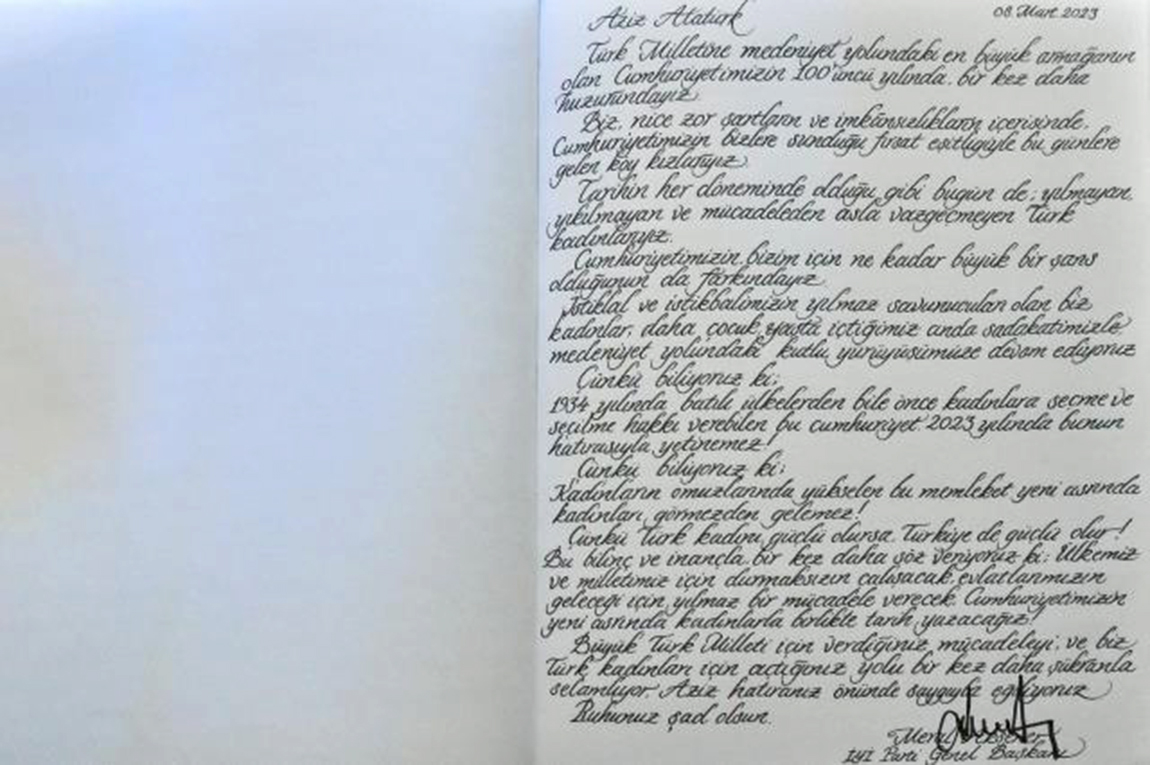 Aziz Atatürk
08. Mart. 2023
Türk Milletine medeniyet yolundaki en büyük armağanın
olan Cumhuriyetimizin 100'üncü yılında, bir kez daha
huzurundayız.
Biz, nice zor şartların ve imkânsızlıkların içerisinde,
Cumhuriyetimizin bizlere sunduğu fırsat eşitliğiyle bu günlere
gelen köy kızlarıyız.
Tarihin her döneminde olduğu gibi bugün de; yılmayan,
yıkılmayan ve mücadeleden asla vazgeçmeyen Türk
kadınlarıyız.
Cumhuriyetimizin bizim için ne kadar büyük bir şans
olduğunun da farkındayız.
İstiklal ve istikbalimizin yılmaz savunucuları olan biz
kadınlar, daha çocuk yaşta içtiğimiz anda sadakatimizle
medeniyet yolundaki kutlu yürüyüşümüze devam ediyoruz
Çünkü biliyoruz ki;
1934 yılında batılı ülkelerden bile önce kadınlara seçme ve
seçilme hakkı verebilen bu cumhuriyet 2023 yılında bunun
hatırasıyla yetinemez!
Çünkü biliyoruz ki;
Kadınların omuzlarında yükselen bu memleket yeni asrında
kadınları görmezden gelemez!
Çünkü Türk kadını güçlü olursa, Türkiye de güçlü olur!
Bu bilinç ve inançla bir kez daha söz veriyoruz ki; Ülkemiz
ve milletimiz için durmaksızın çalışacak, evlatlarımızın
geleceği için yılmaz bir mücadele verecek, Cumhuriyetimizin
yeni asrında kadınlarla birlikte tarih yazacağız!
Büyük Türk Milleti için verdiğiniz mücadeleyi, ve biz
Türk kadınları için açtığınız yolu bir kez daha şükranla
selamlıyor, Aziz hatıranız önünde saygıyla eğiliyoruz
Ruhunuz şad olsun.
Meral Akşener
İYİ Parti Genel Başkanı